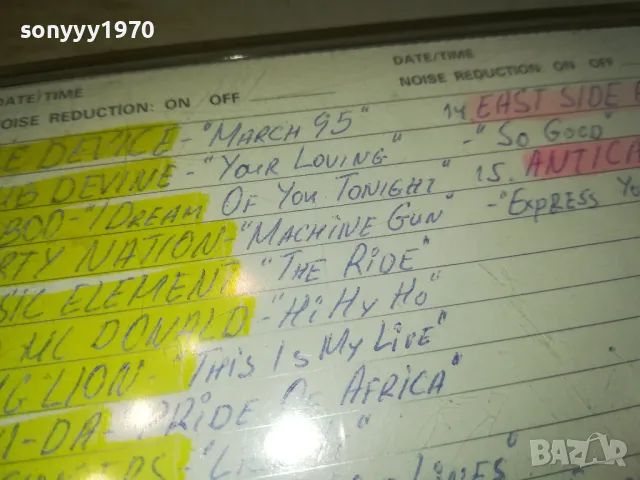 sonyyy1970
DATE/TIME
NOISE REDUCTION: ON OFF
DATE/TIME
NOISE REDUCTION ON OFF
DEVICE - "MARCH 95"
DEVINE - "YOUR LOVING"
BOO - "I DREAM OF YOU TONIGHT"
RTY NATION - "MACHINE GUN"
SIC ELEMENT "THE RIDE"
MC DONALD - "HI HY HO"
G LION - "THIS IS MY LIFE"
I-DA - PRIDE OF AFRICA"
LINES"
14 EAST SIDE
- "SO GOOD"
15. ANTICA
- "EXPRESS YO
bazar